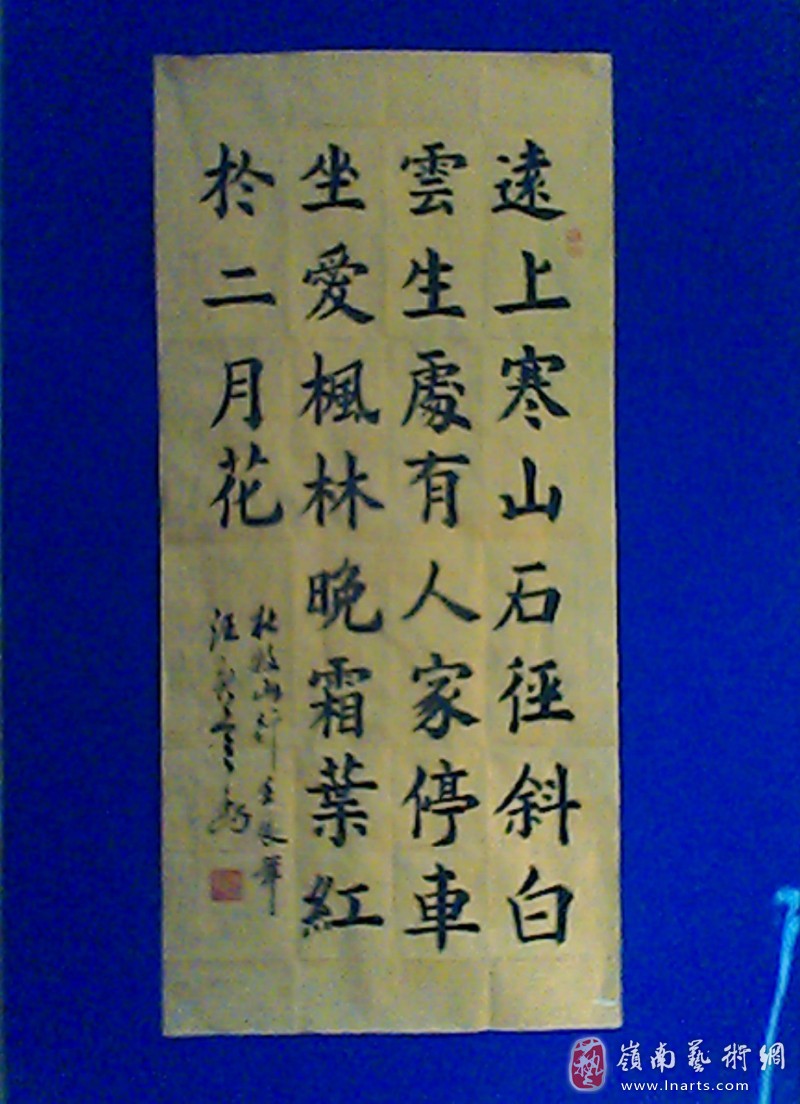 遠上寒山石徑斜白
雲生處有人家停車
坐愛楓林晚霜葉紅
於二月花
杜牧山行
嶺南藝術網
www.lnarts.com